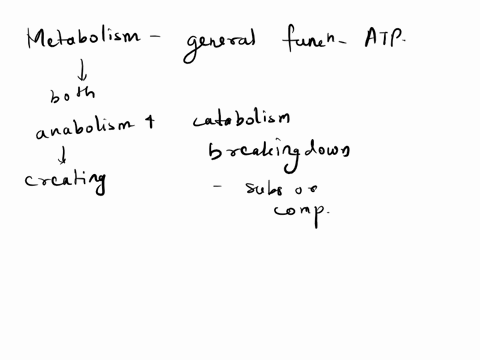 Metabolism - general funcn - ATP.
↓
both
anabolism + catabolism
↓ breaking down
creating - subs or
comp.